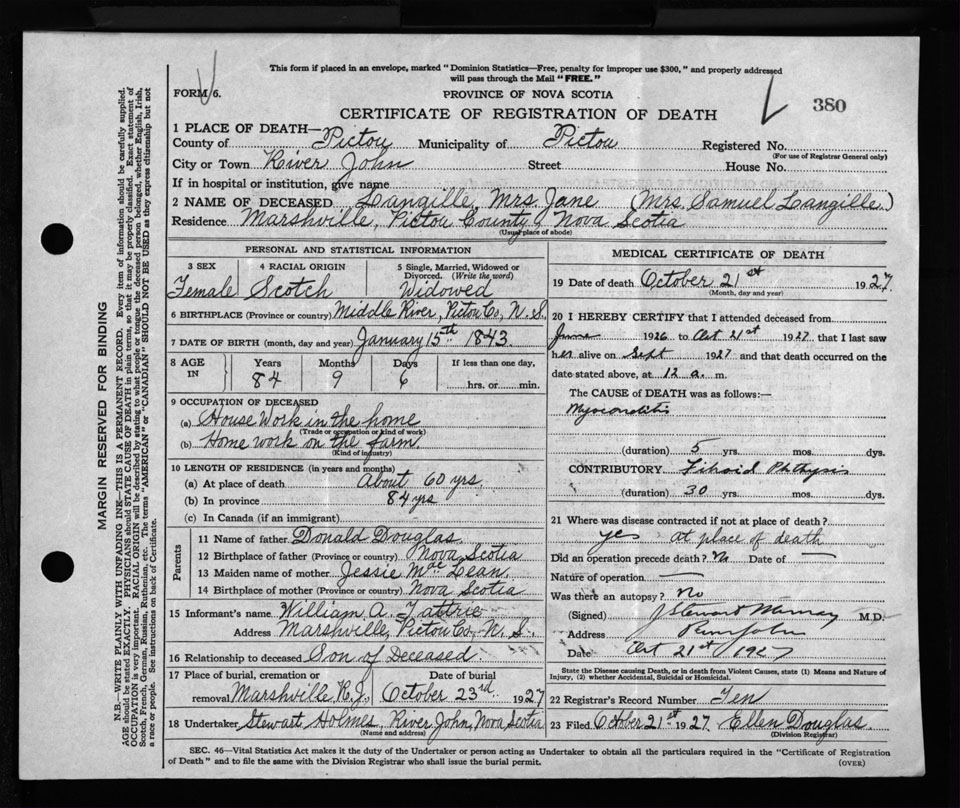 This form if placed in an envelope, marked "Dominion Statistics—Free, penalty for improper use $300," and properly addressed
will pass through the Mail "FREE."
FORM 6.
PROVINCE OF NOVA SCOTIA
380
CERTIFICATE OF REGISTRATION OF DEATH
1 PLACE OF DEATH—
County of Pictou Municipality of Pictou Registered No.
(For use of Registrar General only)
City or Town River John Street House No.
If in hospital or institution, give name
2 NAME OF DECEASED Langille, Mrs. Jane (Mrs. Samuel Langille.)
Residence Marshville, Pictou County, Nova Scotia
(Usual place of abode)
PERSONAL AND STATISTICAL INFORMATION
3 SEX 4 RACIAL ORIGIN 5 Single, Married, Widowed or
Divorced. (Write the word)
Female Scotch Widowed
6 BIRTHPLACE (Province or country) Middle River, Pictou Co, N. S.
7 DATE OF BIRTH (month, day and year) January 15th 1843.
8 AGE IN Years Months Days If less than one day,
84 9 6 hrs. or min.
9 OCCUPATION OF DECEASED
(a) House Work in the home
(Trade or occupation or kind of work)
(b) Home work on the farm.
(Kind of industry)
10 LENGTH OF RESIDENCE (in years and months)
(a) At place of death About 60 yrs
(b) In province 84 yrs
(c) In Canada (if an immigrant)
Parents
11 Name of father Donald Douglas.
12 Birthplace of father (Province or country) Nova Scotia
13 Maiden name of mother Jessie MacLean.
14 Birthplace of mother (Province or country) Nova Scotia
15 Informant's name William A. Tattrie
Address Marshville, Pictou Co, N. S.,
16 Relationship to deceased Son of Deceased.
17 Place of burial, cremation or Date of burial
removal Marshville, R. J, October 23rd 1927
18 Undertaker Stewart Holmes River John, Nova Scotia
(Name and address)
MEDICAL CERTIFICATE OF DEATH
19 Date of death October 21st 1927
(Month, day and year)
20 I HEREBY CERTIFY that I attended deceased from
June 1926 to Oct 21st 1927 that I last saw
her alive on Sept 1927 and that death occurred on the
date stated above, at 12 a. m.
The CAUSE OF DEATH was as follows:—
Myocarditis
(duration) 5 yrs. mos. dys.
CONTRIBUTORY Fibroid Phthysis
(duration) 30 yrs. mos. dys.
21 Where was disease contracted if not at place of death?
yes at place of death
Did an operation precede death? No Date of —
Nature of operation —
Was there an autopsy? No
(Signed) J Stewart Murray M.D.
Address River John
Date Oct 21st 1927
State the Disease causing Death, or in Death from Violent Causes, state (1) Means and Nature of
Injury, (2) whether Accidental, Suicidal or Homicidal.
22 Registrar's Record Number Ten
23 Filed October 21st 1927. Ellen Douglas.
(Division Registrar)
SEC. 46—Vital Statistics Act makes it the duty of the Undertaker or person acting as Undertaker to obtain all the particulars required in the "Certificate of Registration
of Death" and to file the same with the Division Registrar who shall issue the burial permit.
(OVER)
MARGIN RESERVED FOR BINDING
N.B.—WRITE PLAINLY, WITH UNFADING INK—THIS IS A PERMANENT RECORD. Every item of information should be carefully supplied.
AGE should be stated EXACTLY. PHYSICIANS should STATE CAUSE OF DEATH in plain terms, so that it may be properly classified. Exact statement of
OCCUPATION is very important. RACIAL ORIGIN will be described by stating to what people or tongue the deceased person belonged, whether English, Irish,
Scotch, French, German, Russian, Ruthenian, etc. The terms "AMERICAN" or "CANADIAN" SHOULD NOT BE USED as they express citizenship but not
a race or people. See instructions on back of Certificate.